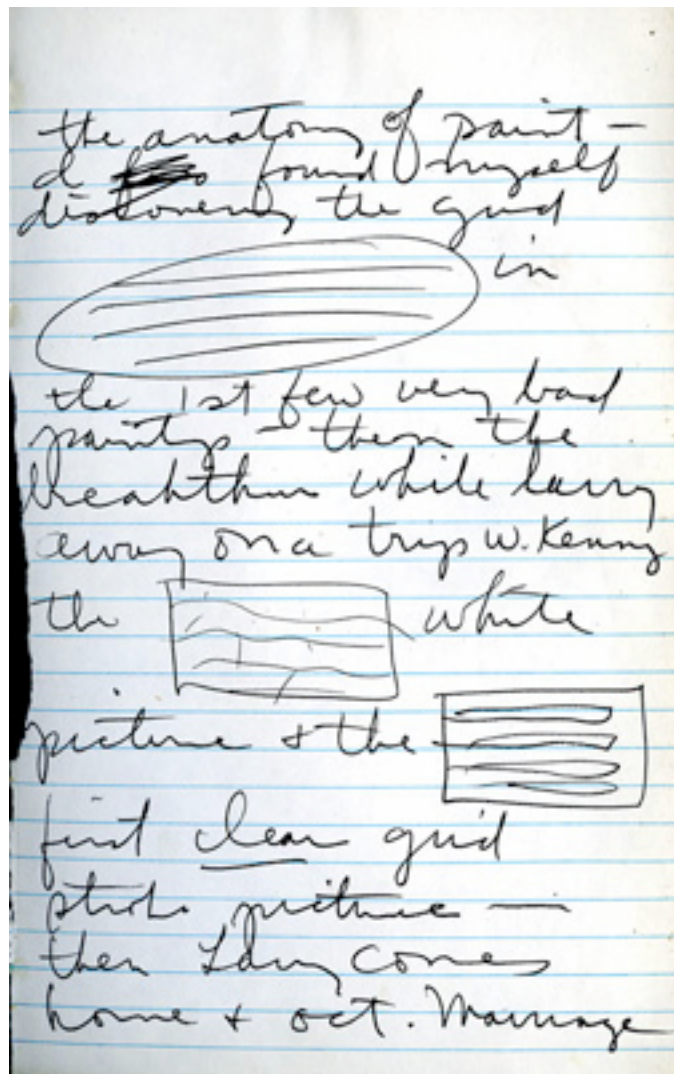 the anatomy of paint —
I found myself
discovering the grid
in
the 1st few very bad
paintings — then the
breakthru while larry
away on a trip w. Kenny
the white
picture & the
first clear grid
stroke picture —
then Larry comes
home & oct. Marriage